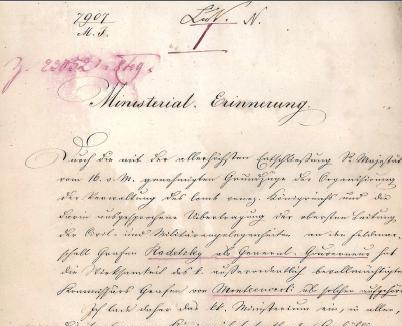 7907
M. I.
Lit. N.
Ministerial-Erinnerung.
Durch die mit der allerhöchsten Entschließung Sr. Majestät
vom 16. v. M. genehmigten Grundzüge der Organisirung
der Verwaltung des lomb. venez. Königreichs und die
darin ausgesprochene Uebertragung der obersten Leitung
der Civil- und Militärangelegenheiten an den Feldmar-
schall Grafen Radetzky als General-Gouverneur hat
die Wirksamkeit des k. außerordentlich bevollmächtigten
Kommissärs Grafen von Montecuccoli als solchen aufgehört
Ich lade daher das kk. Ministerium ein, in allen,